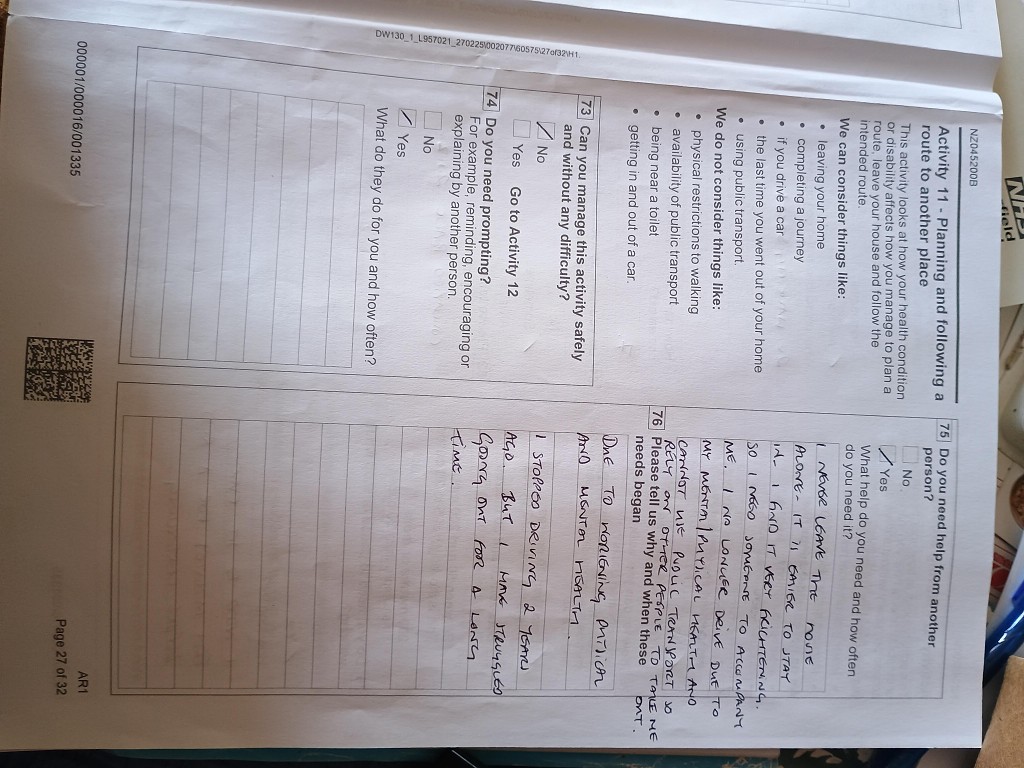 NHS
NZ045200B
Activity 11 - Planning and following a
route to another place
This activity looks at how your health condition
or disability affects how you manage to plan a
route, leave your house and follow the
intended route.
We can consider things like:
• leaving your home
• completing a journey
• if you drive a car
• the last time you went out of your home
• using public transport.
We do not consider things like:
• physical restrictions to walking
• availability of public transport
• being near a toilet
• getting in and out of a car.
73 Can you manage this activity safely
and without any difficulty?
No
Yes Go to Activity 12
74 Do you need prompting?
For example, reminding, encouraging or
explaining by another person.
No
Yes
What do they do for you and how often?
75 Do you need help from another
person?
No
Yes
What help do you need and how often
do you need it?
I NEVER LEAVE THE HOUSE
ALONE. IT IS EASIER TO STAY
IN. I FIND IT VERY FRIGHTENING.
SO I NEED SOMEONE TO ACCOMPANY
ME. I NO LONGER DRIVE DUE TO
MY MENTAL/PHYSICAL HEALTH AND
CANNOT USE PUBLIC TRANSPORT SO
RELY ON OTHER PEOPLE TO TAKE ME
OUT.
76 Please tell us why and when these
needs began
DUE TO WORSENING PHYSICAL
AND MENTAL HEALTH.
I STOPPED DRIVING 2 YEARS
AGO. BUT I HAVE STRUGGLED
GOING OUT FOR A LONG
TIME..
DW130_1_L957021_270225\002077\60575\27of32\H1.
000001/000016/001335
AR1
Page 27 of 32